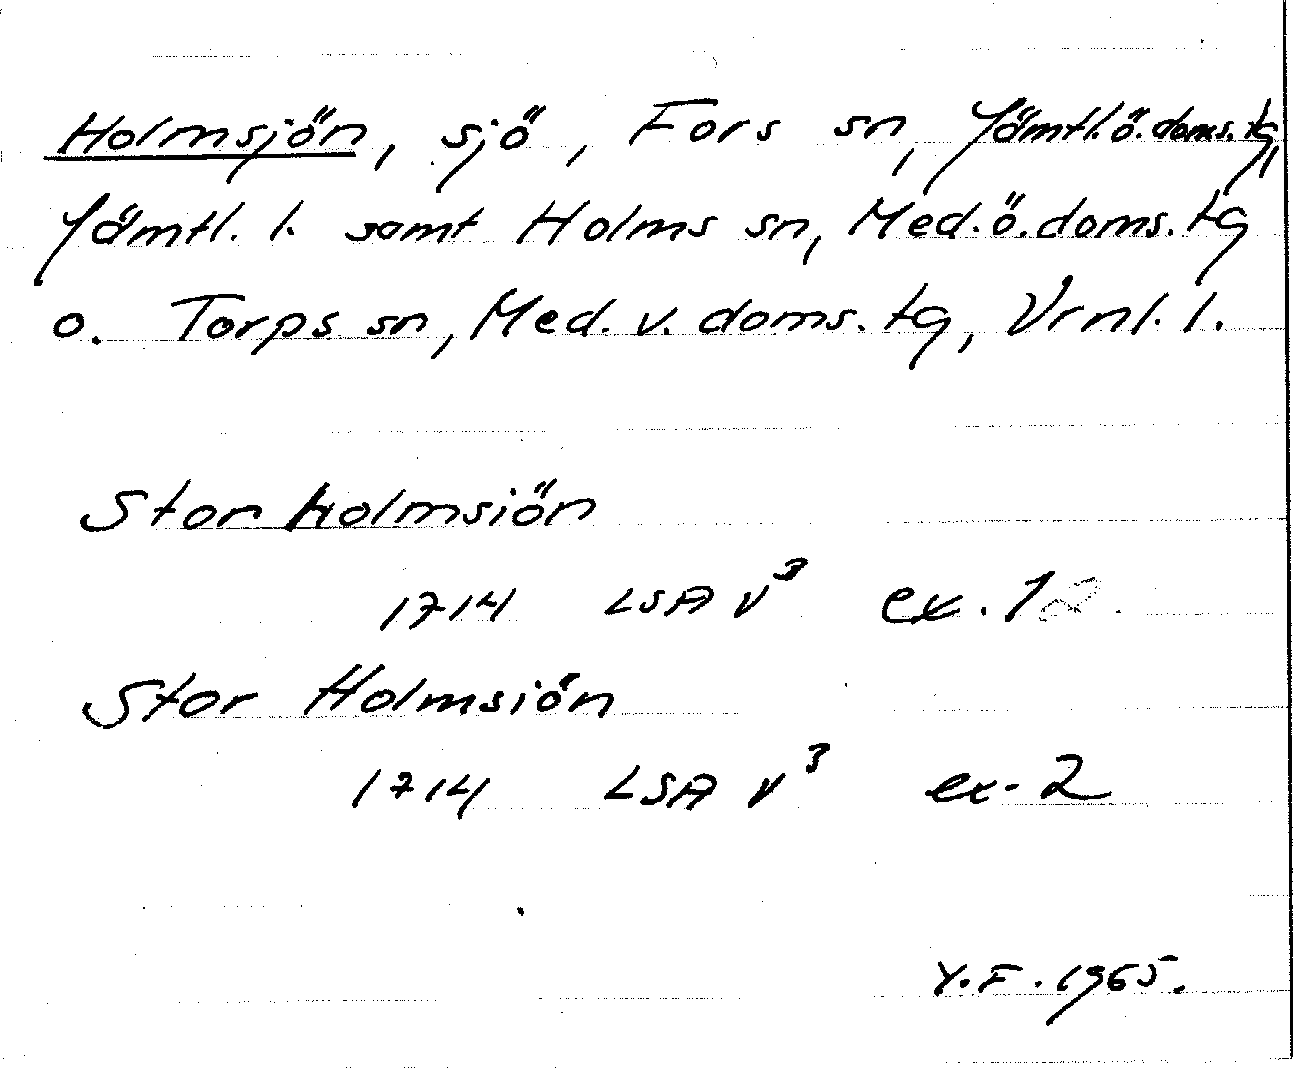 Holmsjön, sjö, Fors sn, Jämtl. ö. doms. tg,
Jämtl. l. samt Holms sn, Med. ö. doms. tg
o. Torps sn, Med. v. doms. tg, Vrnl. l.
Stor holmsiön
1714 LSA V³ ex. 1
Stor Holmsiön
1714 LSA V³ ex. 2
Y. F. 1965.